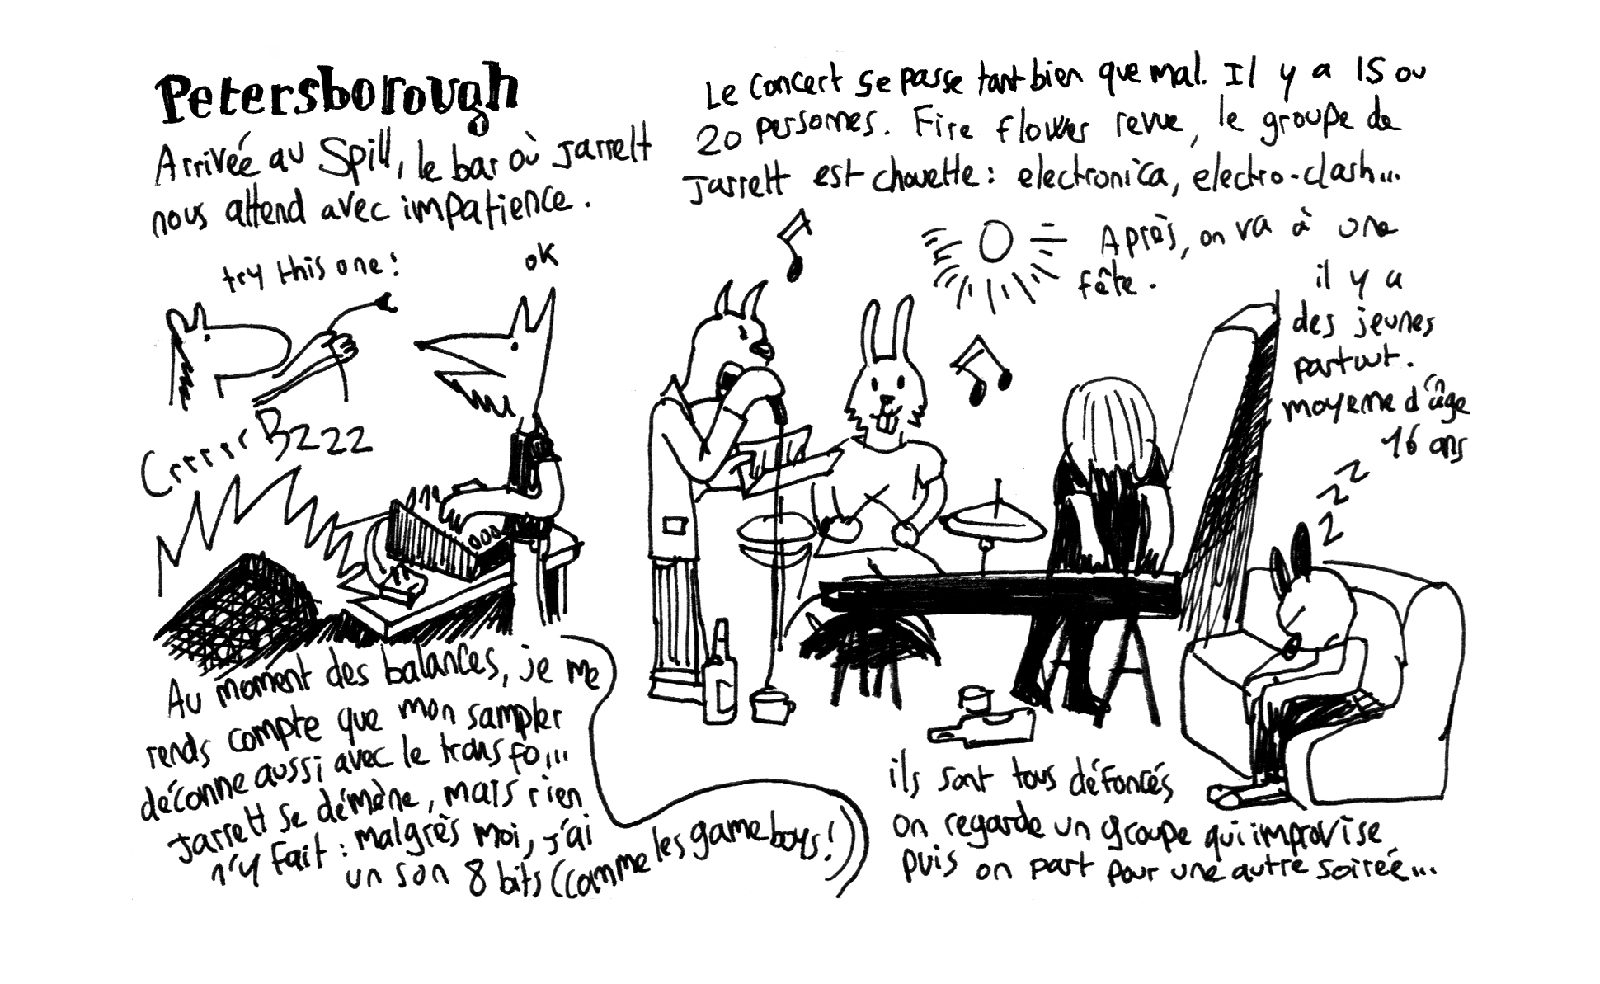 Petersborough
Arrivée au Spill, le bar où Jarrett
nous attend avec impatience.
try this one!
ok
Crrrrr Bzzz
Au moment des balances, je me
rends compte que mon sampler
déconne aussi avec le transfo...
Jarrett se démène, mais rien
n'y fait : malgrès moi, j'ai
un son 8 bits (comme les game boys!)
Le concert se passe tant bien que mal. Il y a 15 ou
20 personnes. Fire flower revue, le groupe de
Jarrett est chouette : electronica, electro-clash...
Après, on va à une
fête.
il y a
des jeunes
partout.
moyenne d'âge
16 ans
zzz
ils sont tous défoncés
on regarde un groupe qui improvise
puis on part pour une autre soirée...